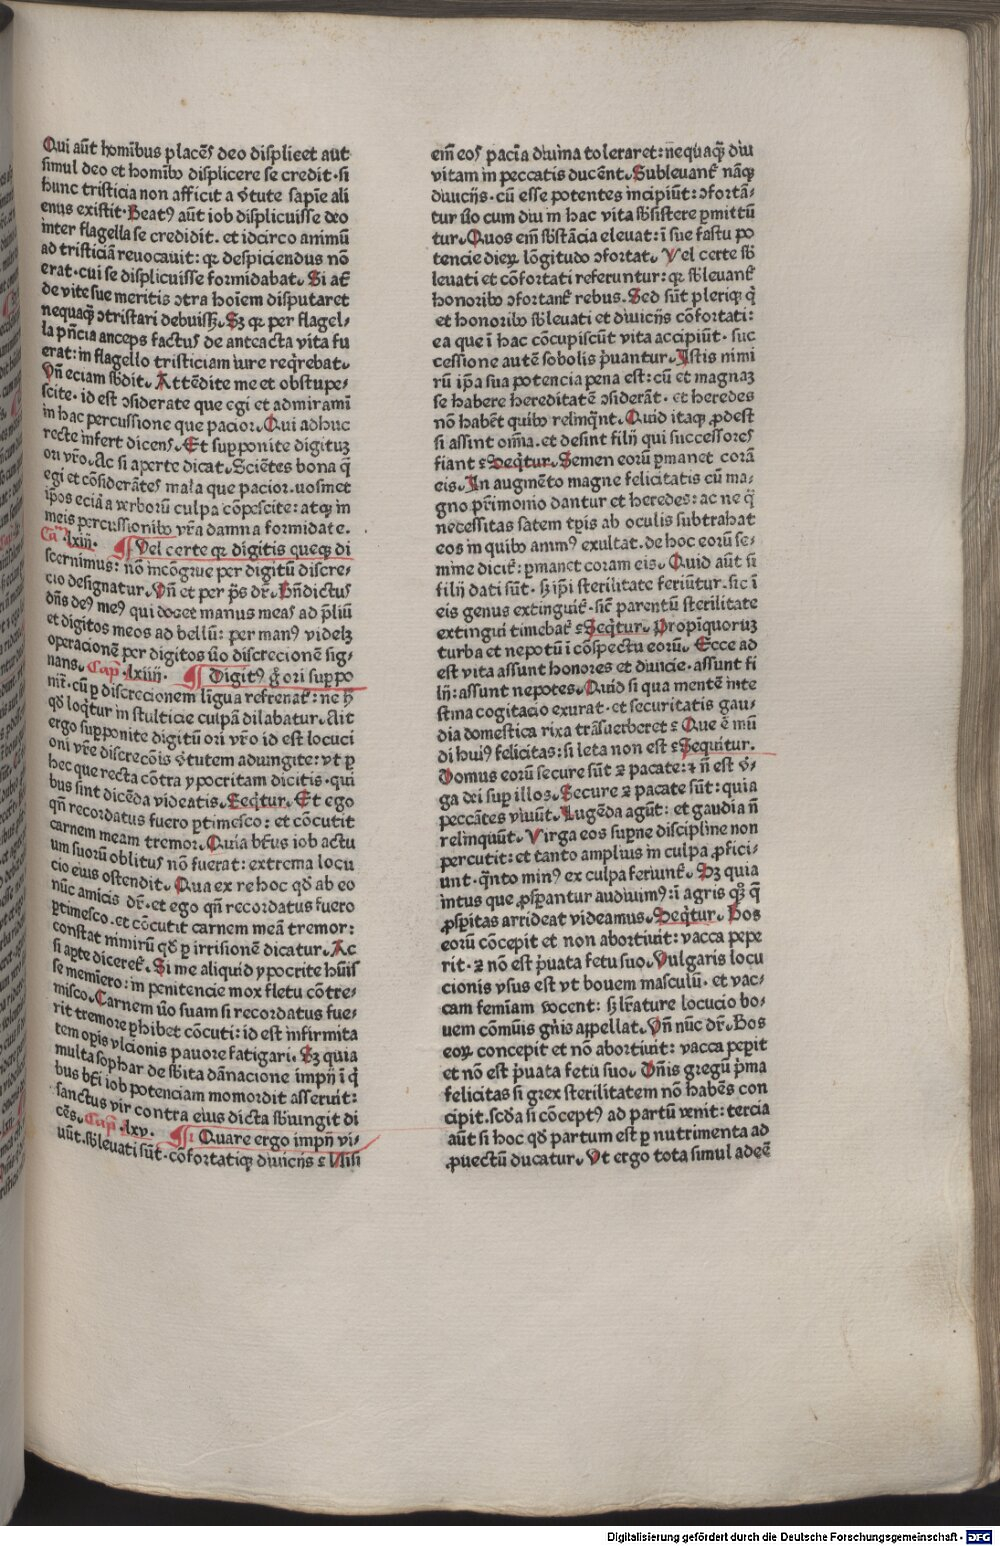 Qui aūt homībus placēs deo displicet aut
simul deo et homībꝰ displicere se credit · si
hunc tristicia non afficit a v̄tute sapīe ali
enus existit · Beatꝰ aūt iob displicuisse deo
inter flagella se credidit . et idcirco animū
ad tristiciā reuocauit: qꝛ despiciendus nō
erat · cui se displicuisse formidabat . Si at̄
de vite sue meritis ↄtra hoīem disputaret
nequaqͣ ↄtristari debuiss̄ . Sꝫ qꝛ per flagel-
la pn̄cia anceps factus de anteacta vita fu
erat: in flagello tristiciam iure reqͥrebat .
Vn̄ eciam sb̄dit . Attēdite me et obstupe-
scite · id est ↄsiderate que egi et admiramī
in hac percussione que pacior . Qui adhuc
recte infert dicens . Et supponite digituꝫ
ori vr̄o . Ac si aperte dicat . Sciētes bona q̄
egi et cōsiderātes mala que pacior . uosmet
ip̄os eciā a verborū culpa cōpescite: atqꝫ in
meis percussionibꝰ vr̄a damna formidate .
Ca . lxiij . ¶ Vel certe qꝛ digitis queqꝫ di
scernimus: nō incōgrue per digitū discre-
cio designatur . Vn̄ et per ps̄ dr̄ . Bn̄dictus
dn̄s deꝰ meꝰ qui docet manus meas ad p̄liū
et digitos meos ad bellū: per manꝰ videlꝫ
operacionē per digitos u̅o discrecionē sig-
nans . Cap̄ . lxiiij . ¶ Digitꝰ g̊ ori suppo
nit̄ · cū ꝑ discrecionem ligua refrenat̄: ne h̄
qd̄ loqͥtur in stulticie culpā dilabatur . Ait
ergo supponite digitū ori vr̄o id est locuci
oni vr̄e discrecōis v̄tutem adiungite: vt ꝑ
hec que recta cōtra ypocritam dicitis · qui
bus sint dicēda videatis . Seqͥtur . Et ego
qn̄ recordatus fuero ꝑtimesco: et cōcutit
carnem meam tremor . Quia bt̄us iob actu
um suorū oblitus nō fuerat: extrema locu
cio eius ostendit . Qua ex re hoc qd̄ ab eo
nūc amicis dr̄ · et ego qn̄ recordatus fuero
ꝑtimesco . et cōcutit carnem meā tremor:
constat nimirū qd̄ ꝑ irrisionē dicatur . Ac
si aꝑte diceret̄ . Si me aliquid ypocrite hūis
se memīero: in penitencie mox fletu cōtre-
misco . Carnem u̅o suam si recordatus fue-
rit tremore ꝑhibet cōcuti: id est infirmita
tem opis vlcionis pauore fatigari . Sꝫ quia
multa sophar de sb̄ita dānacione impij i q̄
bus bt̄i iob potenciam momordit asseruit:
sanctus vir contra eius dicta sb̄iungit di
cēs . Cap̄ . lxv . ¶ Quare ergo impij vi-
uūt . sb̄leuati sūt · cōfortatiqꝫ diuicijs ⁊ Nisi
em̄ eos pacīa diuina toleraret: nequaqͣ diu
vitam in peccatis ducēnt . Subleuant̄ nāqꝫ
diuicijs · cū esse potentes incipiūt: ↄfortā-
tur u̅o cum diu in hac vita sb̄sistere ꝑmittū
tur . Quos em̄ sb̄stācia eleuat: ī sue fastu po
tencie dieꝝ lōgitudo ↄfortat . Vel certe sb̄
leuati et cōfortati referuntur: qꝛ sb̄leuant̄
honoribꝰ ↄfortant̄ rebus . Sed sūt pleriqꝫ qͥ
et honoribꝰ sb̄leuati et diuicijs cōfortati:
ea que ī hac cōcupiscūt vita accipiūt · suc
cessione autē sobolis p̄uantur . Istis nimi
rū ip̄a sua potencia pena est: cū et magnaꝫ
se habere hereditatē ↄsiderāt · et heredes
nō habēt quibꝰ relinqͥnt . Quid itaqꝫ ꝓdest
si assint om̄ia . et desint filij qui successores
fiant ⁊ Seqͥtur . Semen eorū ꝑmanet corā
eis . In augmēto magne felicitatis cū ma-
gno pr̄imonio dantur et heredes: ac ne q̄
necessitas saltem tp̄is ab oculis subtrahat
eos in quibꝰ anim̄ꝰ exultat . de hoc eorū se-
mine dicit̄: ꝑmanet coram eis . Quid aūt si
filij dati sūt · hͥ ip̄i sterilitate feriūtur . sic ī
eis genus extinguit̄ · sic̄ parentū sterilitate
extingui timebat̄ ⁊ Seqͥtur . Propiquoruꝫ
turba et nepotū ī cōspectu eorū . Ecce ad
est vita assunt honores et diuicie · assunt fi
lij: assunt nepotes . Quid si qua mentē inte
stina cogitacio exurat · et securitatis gau-
dia domestica rixa trāsuerberet ⁊ Que ē mū
di huiꝰ felicitas: si leta non est ⁊ Sequitur .
Domus eorū secure sūt ⁊ pacate: ⁊ n̄ est v̄-
ga dei suꝑ illos . Secure ⁊ pacate sūt: quia
peccātes viuūt . Lugēda agūt: et gaudia n̄
relinquūt . Virga eos suꝑne discipline non
percutit: et tanto amplius in culpa ꝓfici-
unt · qͣnto minꝰ ex culpa feriunt̄ . Sꝫ quia
intus que ꝓsꝑantur audiuimꝰ: ī agris qͦꝫ q̄
ꝓsꝑitas arrideat videamus . Seqͥtur . Bos
eorū cōcepit et non abortiuit: vacca pepe
rit · ⁊ nō est p̄uata fetu suo . Vulgaris locu
cionis vsus est vt bouem masculū · et vac-
cam femīam vocent: hͥ lr̄ature locucio bo-
uem cōmūis gn̄is appellat . Vn̄ nūc dr̄ . Bos
eoꝝ concepit et nō abortiuit: vacca peꝑit
et nō est p̄uata fetu suo . Dn̄is gregū pͥma
felicitas si grex sterilitatem nō habēs con
cipit . scd̄a si cōceptꝰ ad partū venit: tercia
aūt si hoc qd̄ partum est ꝑ nutrimenta ad
ꝓuectū ducatur . Vt ergo tota simul adeē
Digitalisierung gefördert durch die Deutsche Forschungsgemeinschaft - DFG